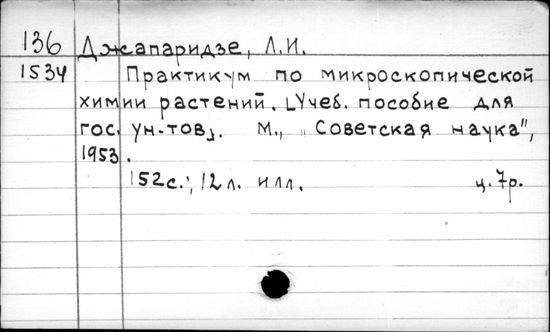 136 Джапаридзе, Л.И.
1534 Практикум по микроскопической
химии растений. [Учеб. пособие для
гос. ун-тов]. М., „Советская наука",
1953.
152с.; 12л. илл. ц. 7р.